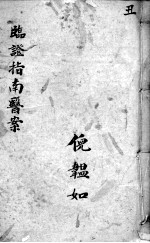 丑
臨證指南醫案
倪韞如